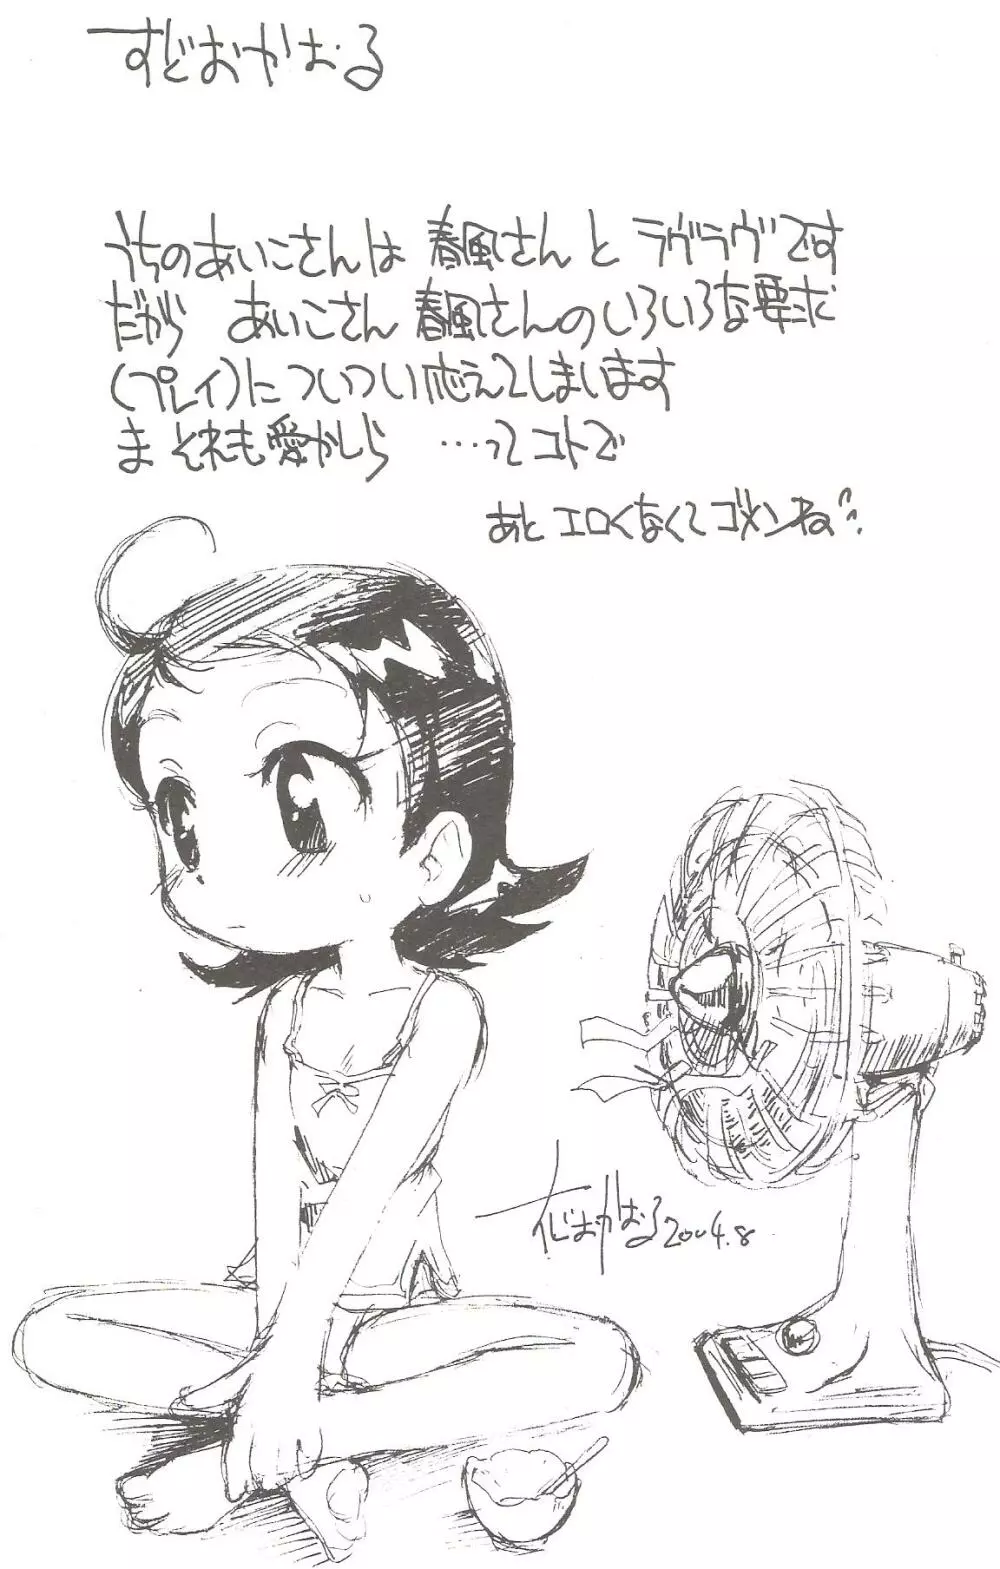 すどおかおる
うちのあいこさんは 春風さんと ラヴラヴです
だから あいこさん 春風さんのいろいろな要求
(プレイ)についつい応えてしまいます
ま それも愛かしら …ってコトで
あと エロくなくてゴメンね
すどおかおる 2004.8